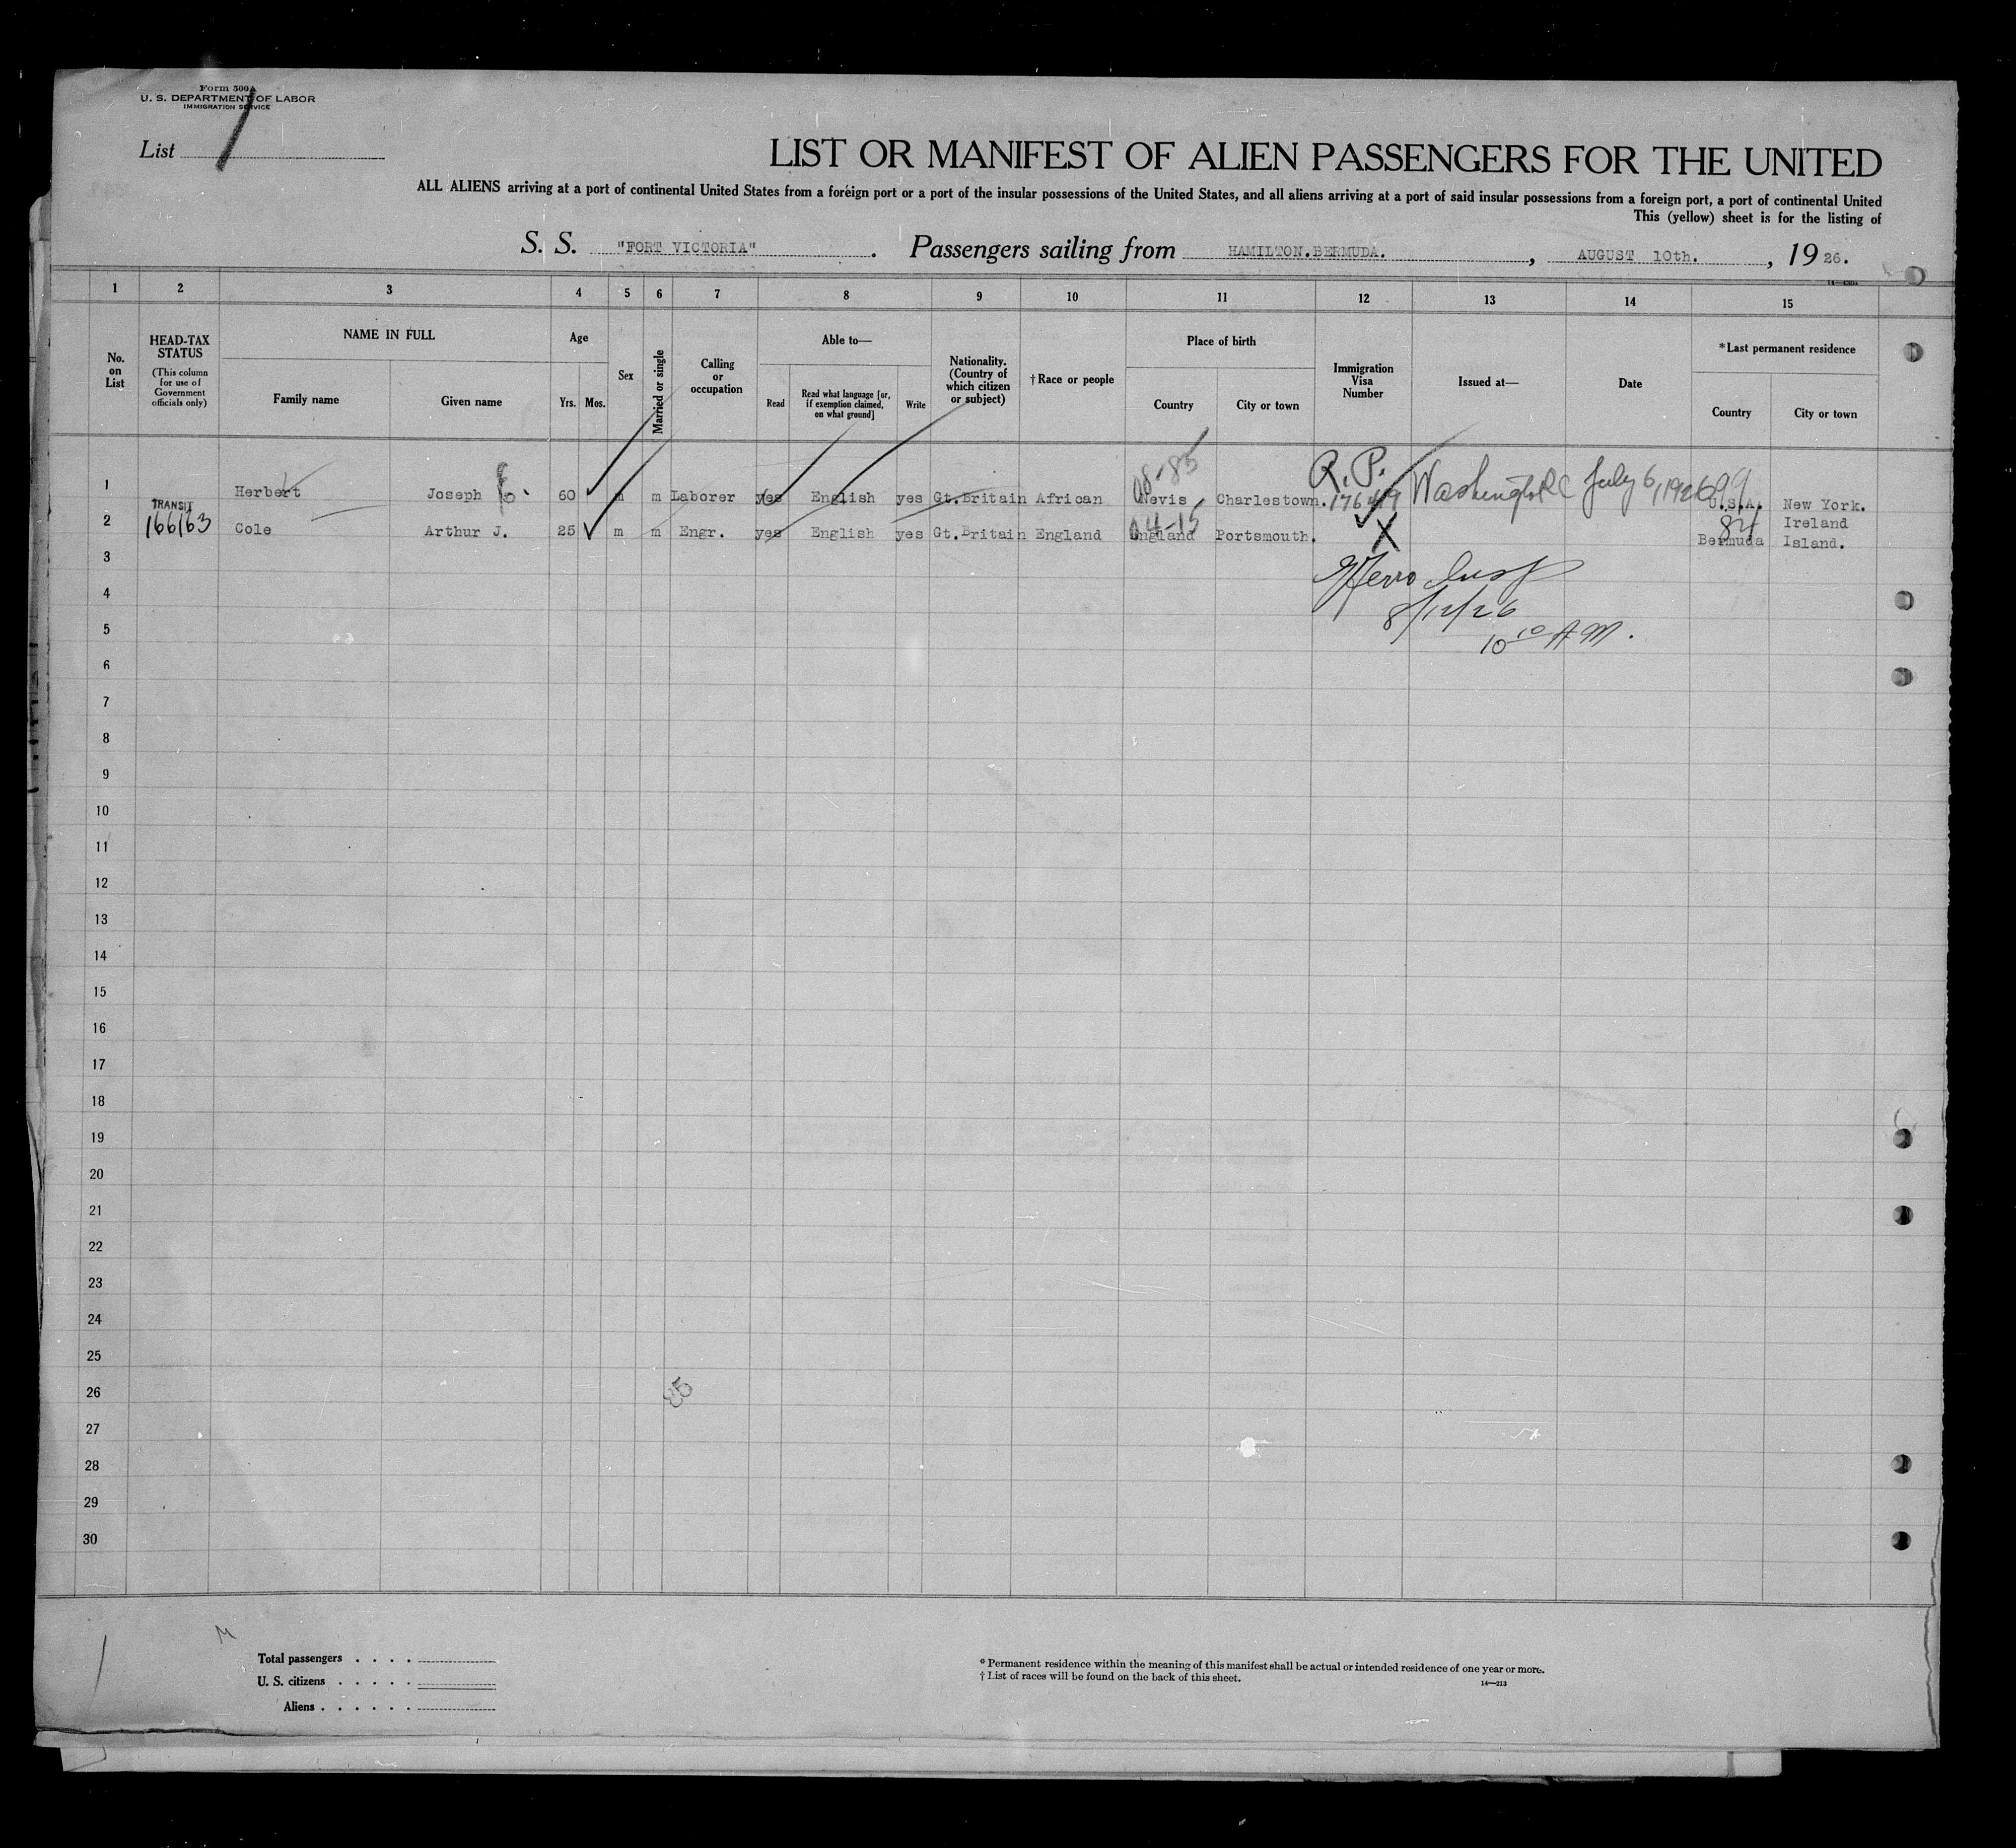 Form 500A
U. S. DEPARTMENT OF LABOR
IMMIGRATION SERVICE
List 1
LIST OR MANIFEST OF ALIEN PASSENGERS FOR THE UNITED
ALL ALIENS arriving at a port of continental United States from a foreign port or a port of the insular possessions of the United States, and all aliens arriving at a port of said insular possessions from a foreign port, a port of continental United
This (yellow) sheet is for the listing of
S. S. "FORT VICTORIA". Passengers sailing from HAMILTON.BERMUDA., AUGUST 10th., 1926.
1 2 3 4 5 6 7 8 9 10 11 12 13 14 15
No. on List
HEAD-TAX STATUS
(This column for use of Government officials only)
NAME IN FULL
Family name
Given name
Age
Yrs. Mos.
Sex
Married or single
Calling or occupation
Able to—
Read
Read what language [or, if exemption claimed, on what ground]
Write
Nationality. (Country of which citizen or subject)
†Race or people
Place of birth
Country
City or town
Immigration Visa Number
Issued at—
Date
*Last permanent residence
Country
City or town
08-85 R.P.
1 Herbert Joseph 60 m m Laborer yes English yes Gt.Britain African Nevis Charlestown. 176419 Washington DC July 6, 1926 U.S.A. New York.
TRANSIT
166163
2 Cole Arthur J. 25 m m Engr. yes English yes Gt.Britain England England Portsmouth. X 84 Bermuda Ireland Island.
3
4
8/12/26
5
10 10 A M.
6
7
8
9
10
11
12
13
14
15
16
17
18
19
20
21
22
23
24
25
26
85
27
28
29
30
Total passengers . . . .
U. S. citizens . . . . .
Aliens . . . . . .
* Permanent residence within the meaning of this manifest shall be actual or intended residence of one year or more.
† List of races will be found on the back of this sheet.
14—213